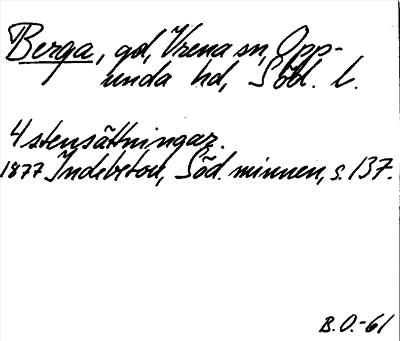 Berga, gd, Vrena sn, Opp-
unda hd, Södl. l.
4 stensättningar.
1877 Indebetou, Söd. minnen, s. 137.
B.O.-61